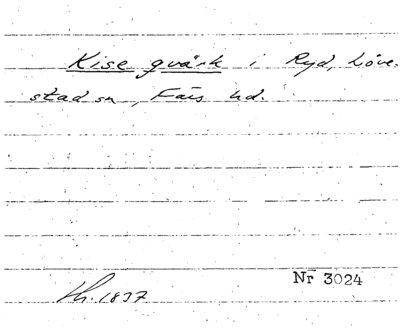 Kise qvärk i Ryd, Löve-
stad sn, Färs hd.
Nr 3024
Kh. 1837